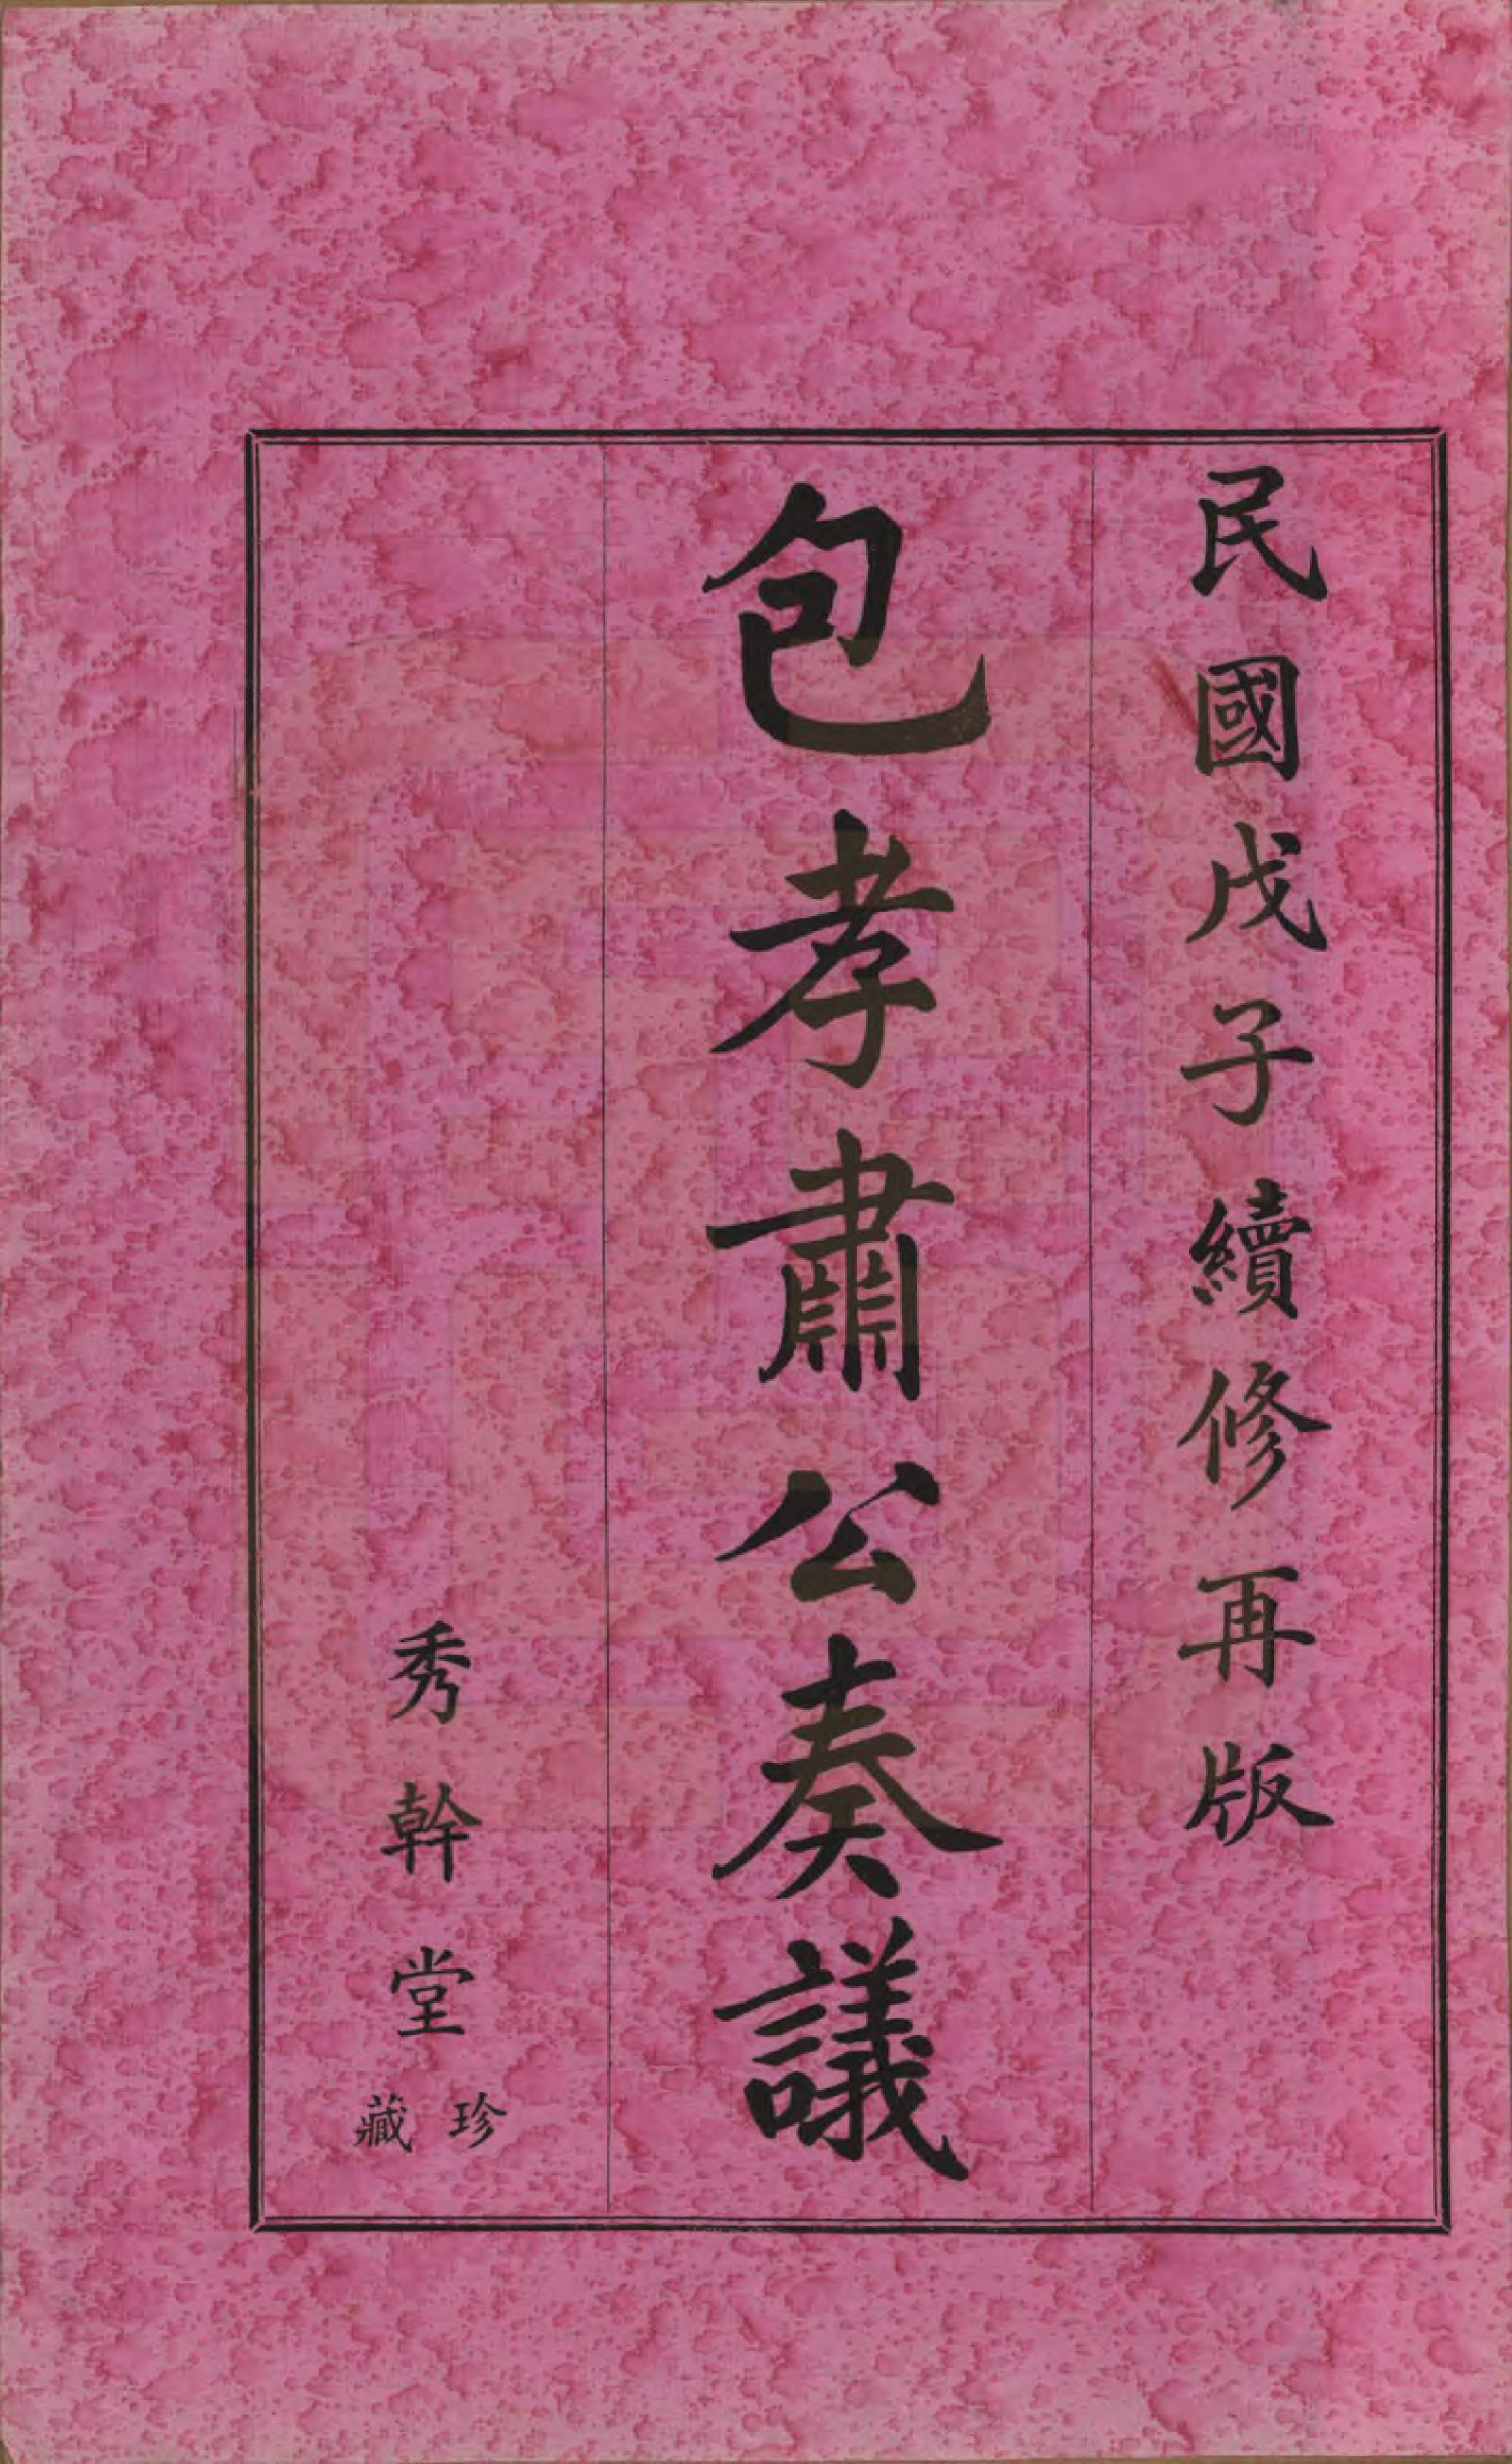 民國戊子續修再版
包孝肅公奏議
秀幹堂
珍藏